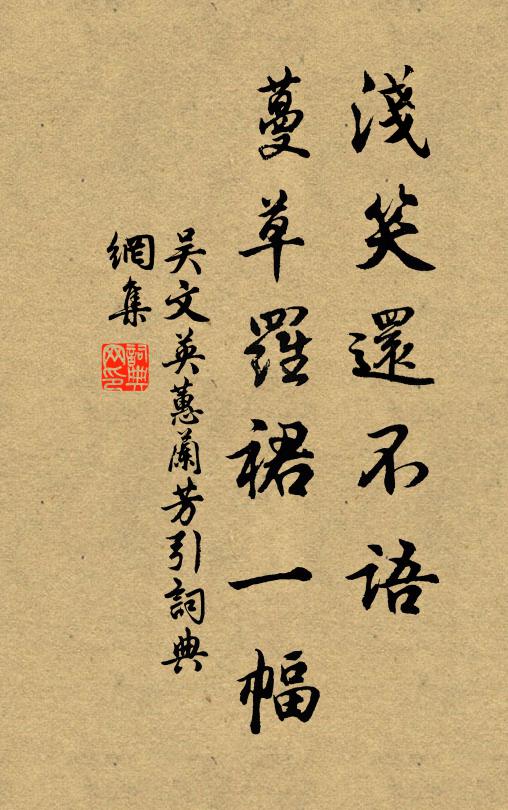 淺笑還不語
蔓草羅裙一幅
吴文英蕙蘭芳引詞典
網集
詞典網印